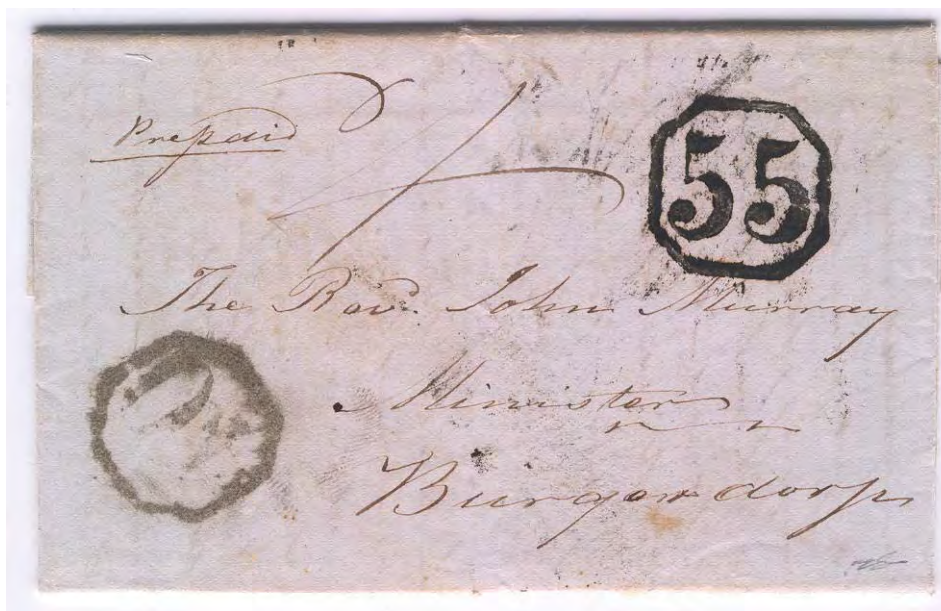 Prepaid
55
The Revd. John Murray
Minister
Burgersdorp